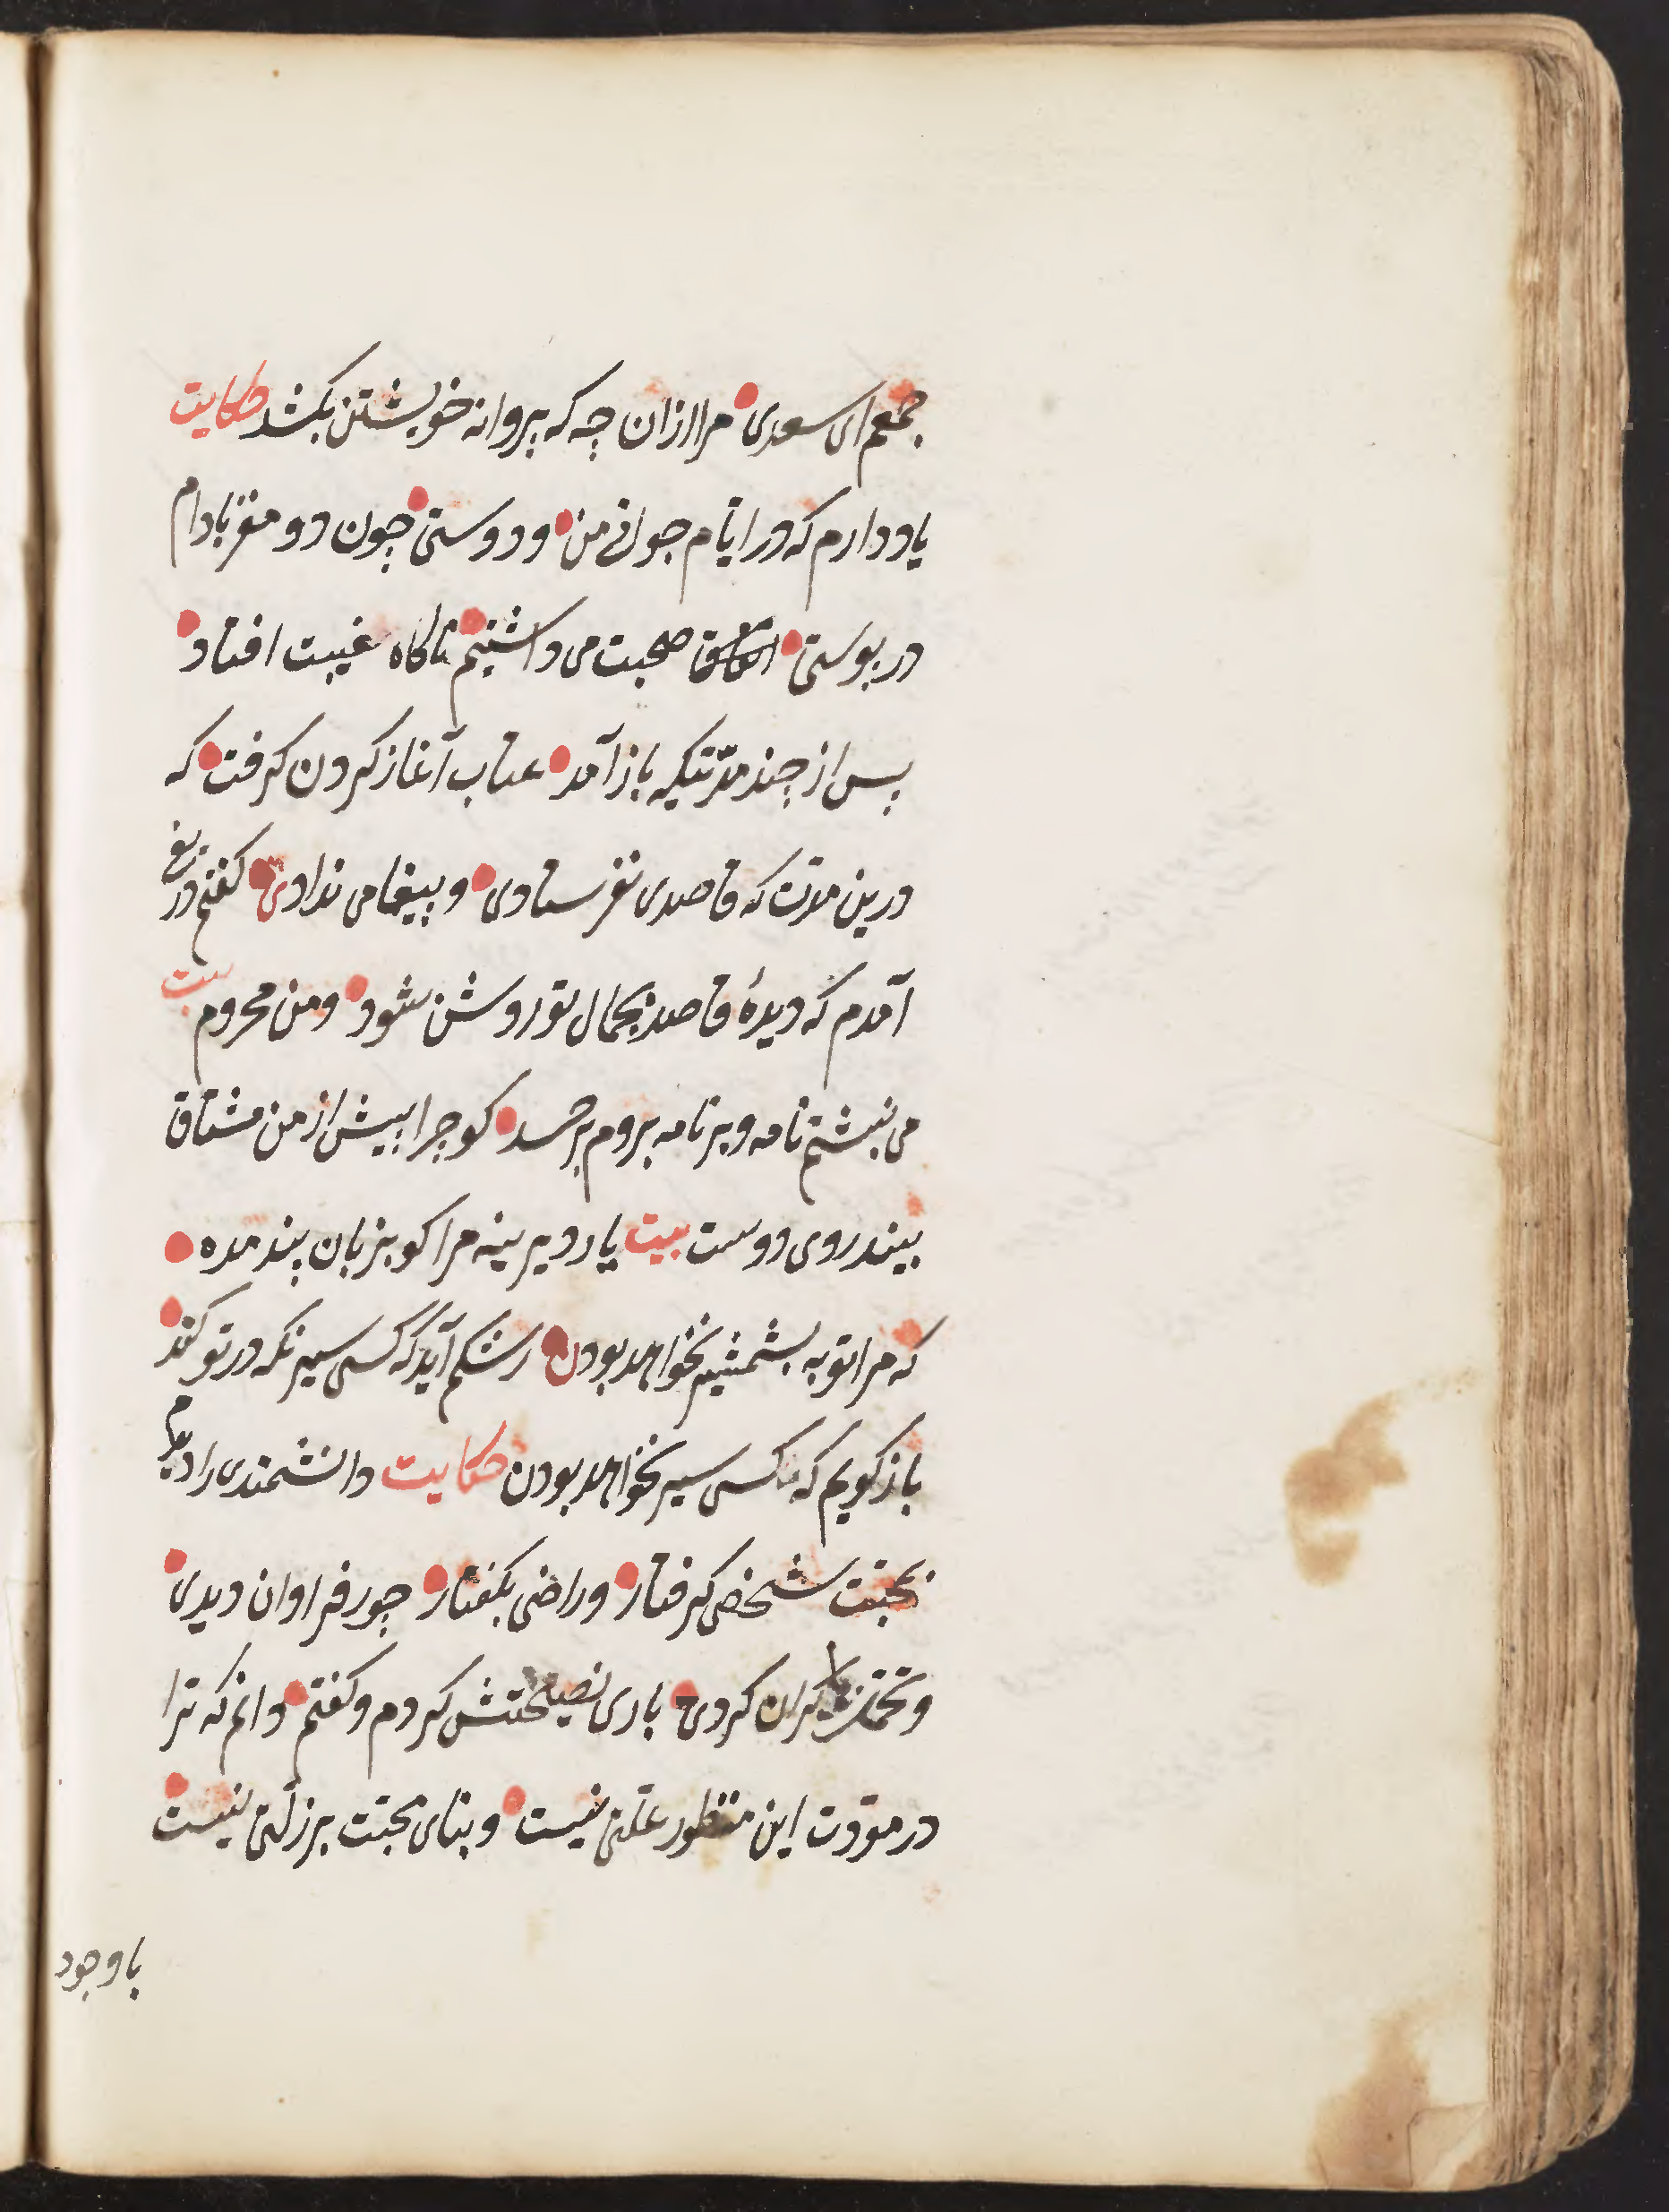 جمعم ای سعدی مرا ازان چه که پروانه خویشتن بکشد حکایت
یاد دارم که در ایّام جوانی من و دوستی چون دو مغز بادام
در پوستی اتفاق صحبت می داشتیم ناکاه غیبت افتاد
پس از چند مدّتیکه باز آمد عتاب آغاز کردن کرفت که
درین مدّت که قاصدی نفرستادی و پیغامی ندادی کفتم دریغ
آمدم که دیدهٔ قاصد بجمال تو روشن شود و من محروم بیت
می نبشتم نامه و بر نامه بروم بر حسد کو چرا پیش از من مشتاق
بیند روی دوست بیت یار دیرینه مرا کو بزبان پند مده
که مرا توبه بشمشیر نخواهد بودن رشکم آید که کسی سیر نکه در تو کند
باز کویم که کسی سیر نخواهد بودن حکایت دانشمندی را دیدم
بمحبّت شخصی کرفتار و راضی بکفتار جور فراوان دیدی
و تحمّل کران کردی باری نصیحتش کردم و کفتم دانم که ترا
در مودّت این منظور علّتی نیست و بنای محبّت بر زلّتی نیست
باوجود